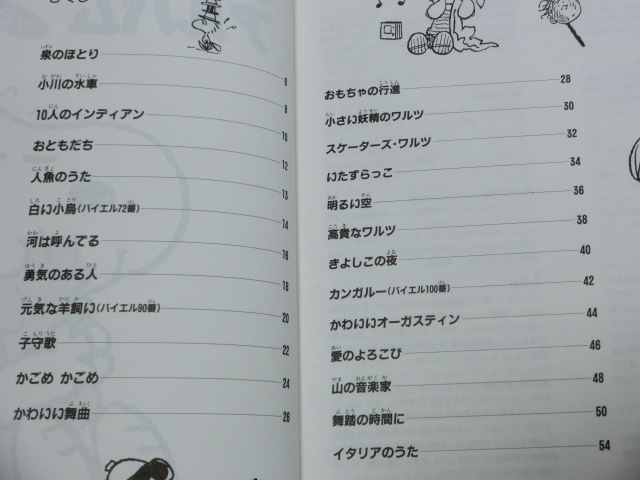 泉のほとり 8
小川の水車 9
10人のインディアン 10
おともだち 12
人魚のうた 13
白い小鳥(バイエル72番) 14
河は呼んでる 16
勇気のある人 18
元気な羊飼い(バイエル90番) 20
子守歌 22
かごめ かごめ 24
かわいい舞曲 26
おもちゃの行進 28
小さい妖精のワルツ 30
スケーターズ・ワルツ 32
いたずらっこ 34
明るい空 36
高貴なワルツ 38
きよしこの夜 40
カンガルー(バイエル100番) 42
かわいいオーガスティン 44
愛のよろこび 46
山の音楽家 48
舞踏の時間に 50
イタリアのうた 54